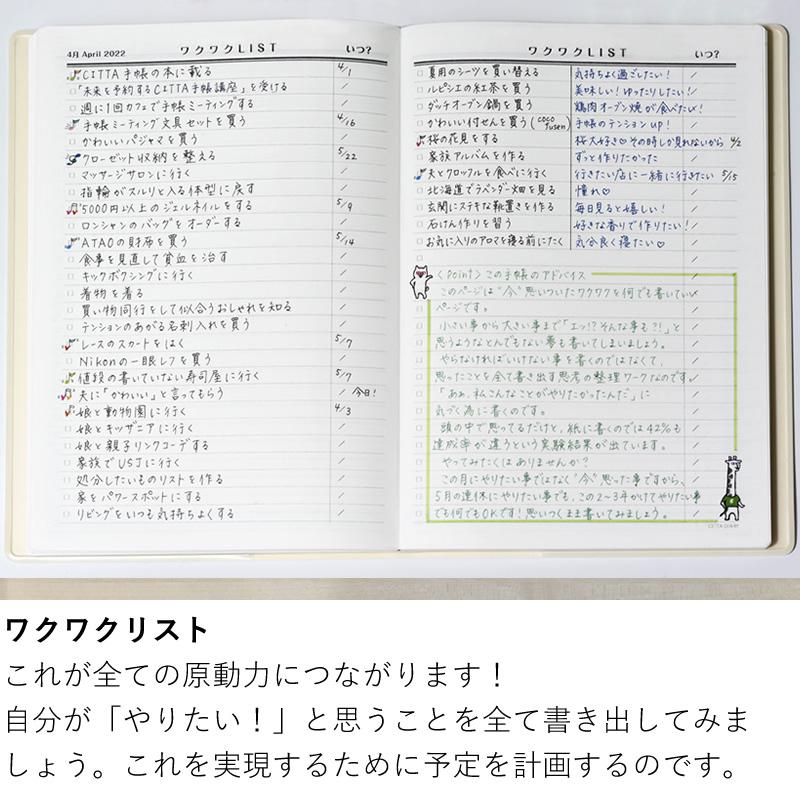 4月 April 2022 ワクワクLIST いつ?
CITTA手帳の本に載る 4/1
「未来を予約するCITTA手帳講座」を受ける /
週に1回カフェで手帳ミーティングする /
手帳ミーティング文具セットを買う 4/16
かわいいパジャマを買う /
クローゼット収納を整える 5/22
マッサージサロンに行く /
指輪がスルリと入る体型に戻す /
5000円以上のジェルネイルをする 5/9
ロンシャンのバッグをオーダーする /
ATAOの財布を買う 5/14
食事を見直して貧血を治す /
キックボクシングに行く /
着物を着る /
買い物同行をして似合うおしゃれを知る /
テンションのあがる名刺入れを買う /
レースのスカートをはく 5/7
Nikonの一眼レフを買う /
値段の書いていない寿司屋に行く 5/7
夫に「かわいい」と言ってもらう 今日!
娘と動物園に行く 4/3
娘とキッザニアに行く /
娘と親子リンクコーデする /
家族でUSJに行く /
処分したいものリストを作る /
家をパワースポットにする /
リビングをいつも気持ちよくする /
ワクワクLIST いつ?
夏用のシーツを買い替える 気持ちよく過ごしたい! /
ルピシエの紅茶を買う 美味しい!ゆったりしたい! /
ダッチオーブン鍋を買う 鶏肉オーブン焼が食べたい! /
かわいい付せんを買う(coco fusen) 手帳のテンションup! /
桜の花見をする 桜大好き♡その時しか見れないから 4/2
家族アルバムを作る ずっと作りたかった /
夫とクロックルを食べに行く 行きたい店に一緒に行きたい 5/15
北海道でラベンダー畑を見る 憧れ♡ /
玄関にステキな靴置きを作る 毎日見ると嬉しい! /
石けん作りを習う 好きな香りで作りたい! /
お気に入りのアロマを寝る前にたく 気分良く寝たい♡ /
〈Point〉この手帳のアドバイス
このページは"今"思いついたワクワクを何でも書いていい
ページです。
小さい事から大きい事まで「エッ!?そんな事も?!」と
思うようなとんでもない夢も書いてしまいましょう。
やらなければいけない事を書くのではなくて、
思ったことを全て書き出す思考の整理ワークなのです。
「あぁ、私こんなことがやりたかったんだ」に
気づく為に書くのです。
頭の中で思ってるだけと、紙に書くのでは42%も
達成率が違うという実験結果が出ています。
やってみたくはありませんか?
この月にやりたい事ではなく"今"思った事ですから、
5月の連休にやりたい事でも、この2〜3年かけてやりたい事
でも何でもOKです!思いつくまま書いてみましょう。
CITTA DIARY
ワクワクリスト
これが全ての原動力につながります!
自分が「やりたい!」と思うことを全て書き出してみま
しょう。これを実現するために予定を計画するのです。